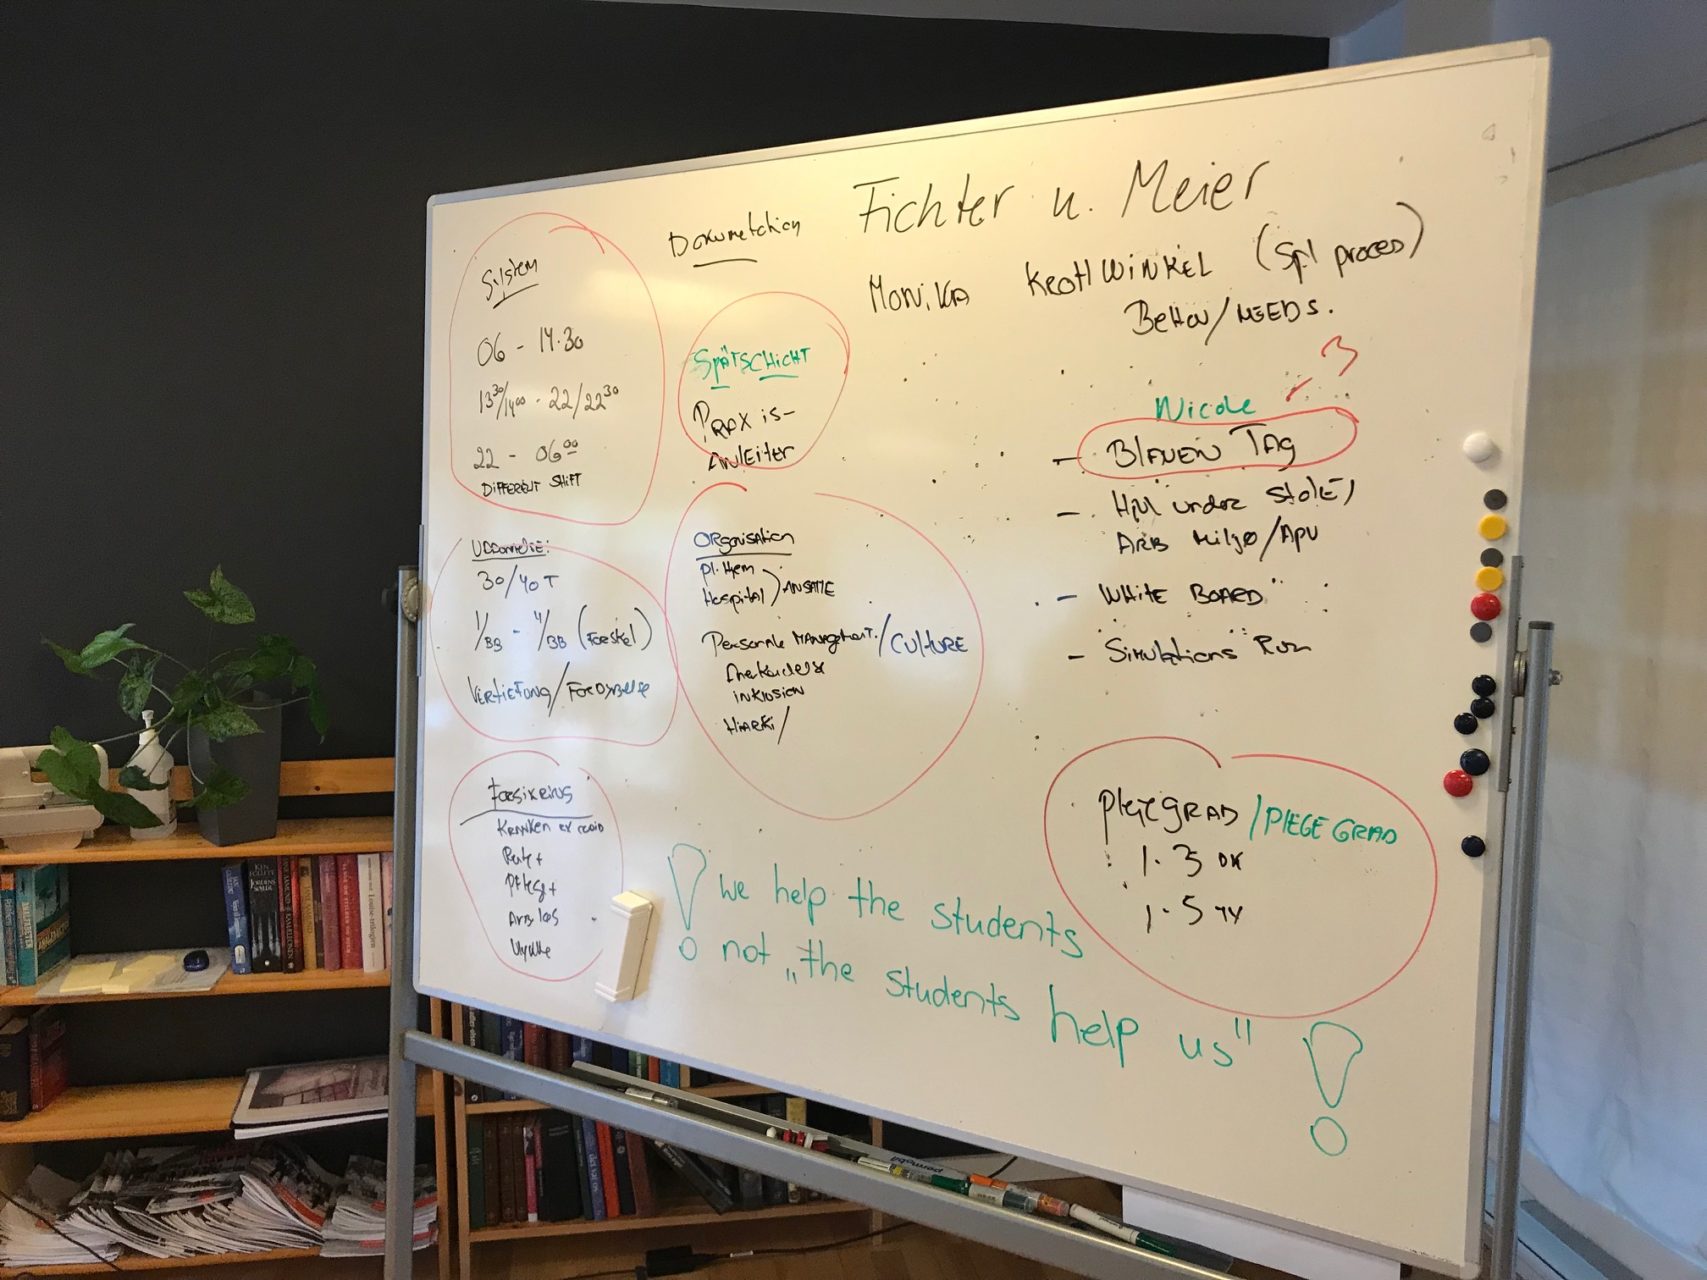 Fichter u. Meier
Dokumetation
Monika Krohwinkel (Spl proces)
Behov/NEEDS.
System
06 - 14.30
13³⁰/14⁰⁰ - 22/22³⁰
22 - 06⁰⁰
DIFFERENT SHIFT
SPÄTSCHICHT
PRAXIS-
ANLEITER
3
Nicole
- BLAUEN TAG
- Hjul under stole/
ARB Miljø/APV
- WHITE BOARD
- Simulations Rum
30/40 T
1/BB - 4/BB (Forskel)
VERTIEFUNG/FORDYBELSE
ORGANISATION
Pl. Hjem
Hospital) ANSATTE
Personale MANAGEMENT/CULTURE
inklusion
HIARKI/
Forsikring
Kranken
Rente +
Pflege +
Arb løs
Ulykke
PLEGEGRAD/PLEGE GRAD
1-3 DK
1-5 TY
! we help the students
not „the students help us" !